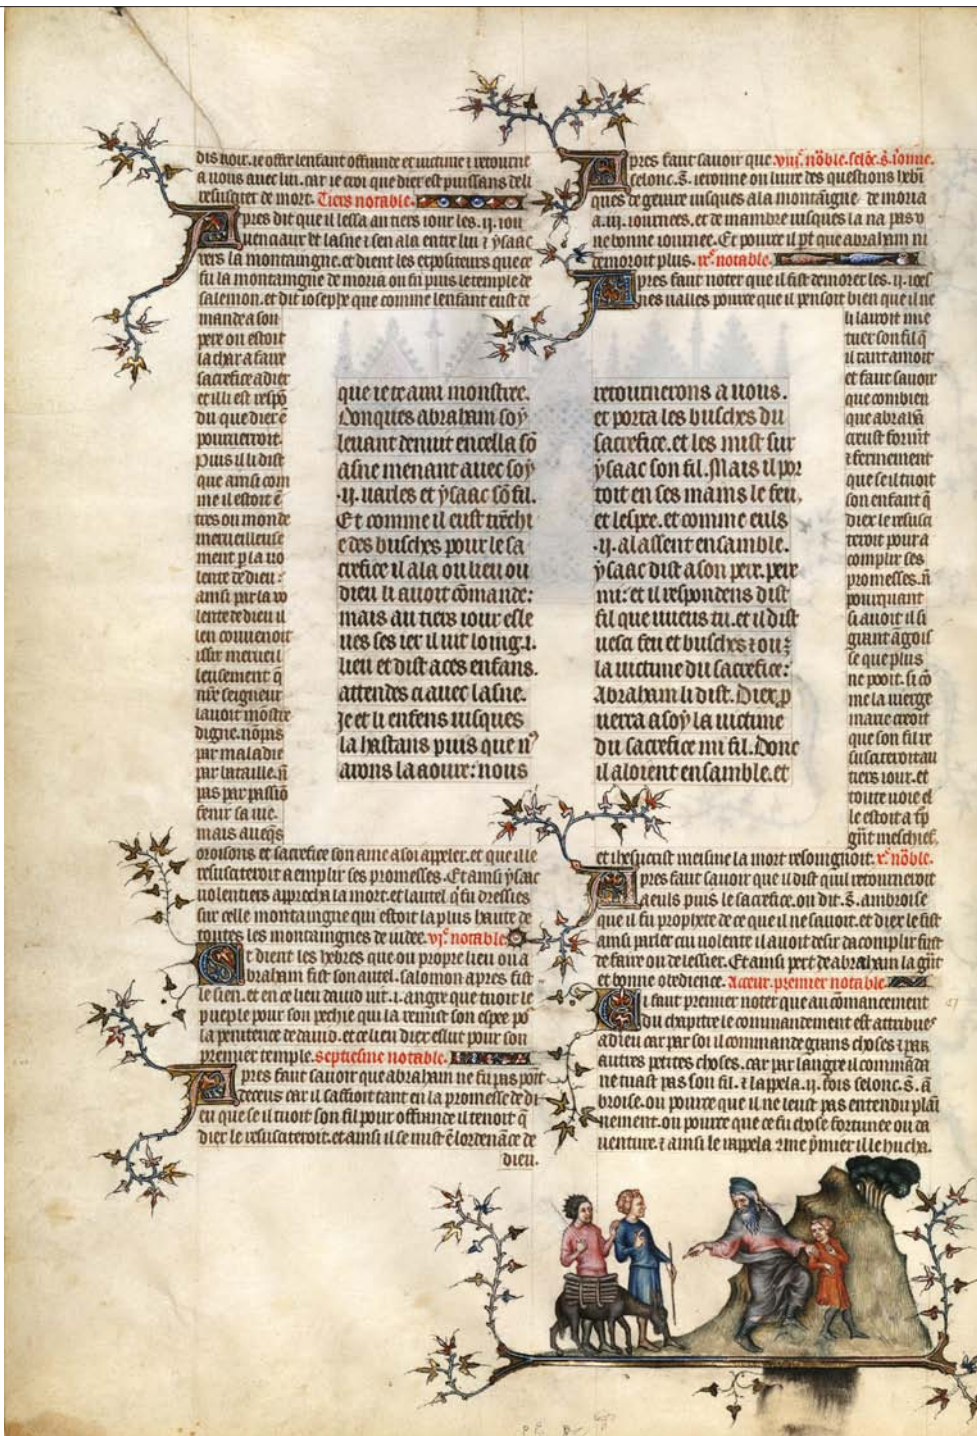 dis noir. ie offre lenfant offrande et victime i retourne
a vous avec lui. car ie croi que diex est puissans deli
resusciter de mort. Tiers notable.
Apres dit que il lessa au tiers iour les .ij. iou
venciaux et lasne i sen ala entre lui i ysaac
vers la montaingne. et dient les expositeurs que ce
fu la montaingne de moria ou fu puis le temple de
salemon. et dit iosephe que comme lenfant eust de
mande a son
pere ou estoit
la char a faire
sacrefice a diex
et il li est respō
du que diex ē
pourvenroit.
Puis il li dist
que ainsi com
me il estoit ē
tres ou monde
merveilleuse
ment p la vo
lente de dieu:
ainsi par la vo
lente de dieu il
len couvenoit
issir merveil
leusement q̄
nr̄e seigneur
lavoit mōstre
digne. nōpas
par maladie
par bataille. ñ
pas par passiō
fenir sa vie.
mais aveq̄s
oroisons et sacrefice son ame a soi appeler. et que il le
resusciteroit a emplir ses promesses. Et ainsi ysaac
volentiers approcha la mort. et lautel q̄ fu dressies
sur celle montaingne qui estoit la plus haute de
toutes les montaingnes de iudee. vi^e. notable
Et dient les hebrex que ou propre lieu ou a
braham fist son autel. salomon apres fist
le sien. et en ce lieu david vit .i. angre que tuoit le
pueple pour son pechie qui la remist son espee po^r
la penitence de david. et ce lieu diex eslut pour son
premier temple. Septiesme notable.
Apres faut savoir que abraham ne fu pas poīt
deceus car il saffioit tant en la promesse de di
eu que se il tuoit son fil pour offrande il tenoit q̄
diex le resusciteroit. et ainsi il se mist ē lordenāce de
dieu.
que ie te aurai monstre.
Donques abraham soy
levant de nuit en cella sō
asne menant avec soy
.ij. varles et ysaac sō fil.
Et comme il eust trēchi
e des busches pour le sa
crefice il ala ou lieu ou
dieu li avoit cōmande:
mais au tiers iour esle
ves ses iex il vit loing .i.
lieu et dist a ces enfans.
attendes ci avec lasne.
Je et li enfens iusques
la hastans puis que n^9
avons la aoure: nous
retournerons a vous.
et porta les busches du
sacrefice. et les mist sur
ysaac son fil. Mais il por
toit en ses mains le feu,
et lespee. et comme euls
.ij. alassent ensamble.
ysaac dist a son pere. pere
mi: et il respondens dist
fil que vieus tu. et il dist
vesci feu et busches i ou ꝫ
la victime du sacrefice:
Abraham li dist. Diex p
verra a soy la victime
du sacrefice mi fil. Donc
il aloient ensamble. et
Apres faut savoir que viij^e. nōble. selōc. s̄. ierōme.
selonc. s̄. ieromme ou livre des questions hebri
ques de geneve iusques a la montaingne de moria
a .iij. iournees. et de mambre iusques la na pas v
ne bonne iournee. Et pource il pt que abraham ni
demoroit plus. ix^e. notable.
Apres faut noter que il fist demorer les .ij. ioes
nes valles pource que il pensoit bien que il ne
li lairoit mie
tuer son fil q̄
il tant amoit
et faut savoir
que combien
que abrahā
creust formt
i fermement
que se il tuoit
son enfant q̄
diex le resusci
teroit pour a
complir ses
promesses. ñ
pourquant
si avoit il si
grant āgois
se que plus
ne pooit. si cō
me la vierge
marie creoit
que son fil re
susciteroit au
tiers iour. et
toute voie el
le estoit a tp̄
gn̄t meschief.
et ihesucrist meisme la mort resoingnoit. x^e. nōble.
Apres faut savoir que il dist quil retourneroit
a euls puis le sacrefice. ou dit .s̄. ambroise
que il fu prophete de ce que il ne savoit. et diex le fist
ainsi parler cui volente il avoit desir dacomplir fust
de faire ou de lessier. Et ainsi pert de abraham la gn̄t
et bonne obedience. Acteur. premier notable
Ci faut premier noter que au cōmancement
du chapitre le commandement est attribue^s
a dieu car par soi il commande grans choses i par
autres petites choses. car par langre il commāda
ne tuast pas son fil. i lappela .ij. fois selonc. s̄. ā
broise. ou pource que il ne leust pas entendu plai
nement. ou pource que ce fu chose fortunee ou da
venture. i ainsi le rappela